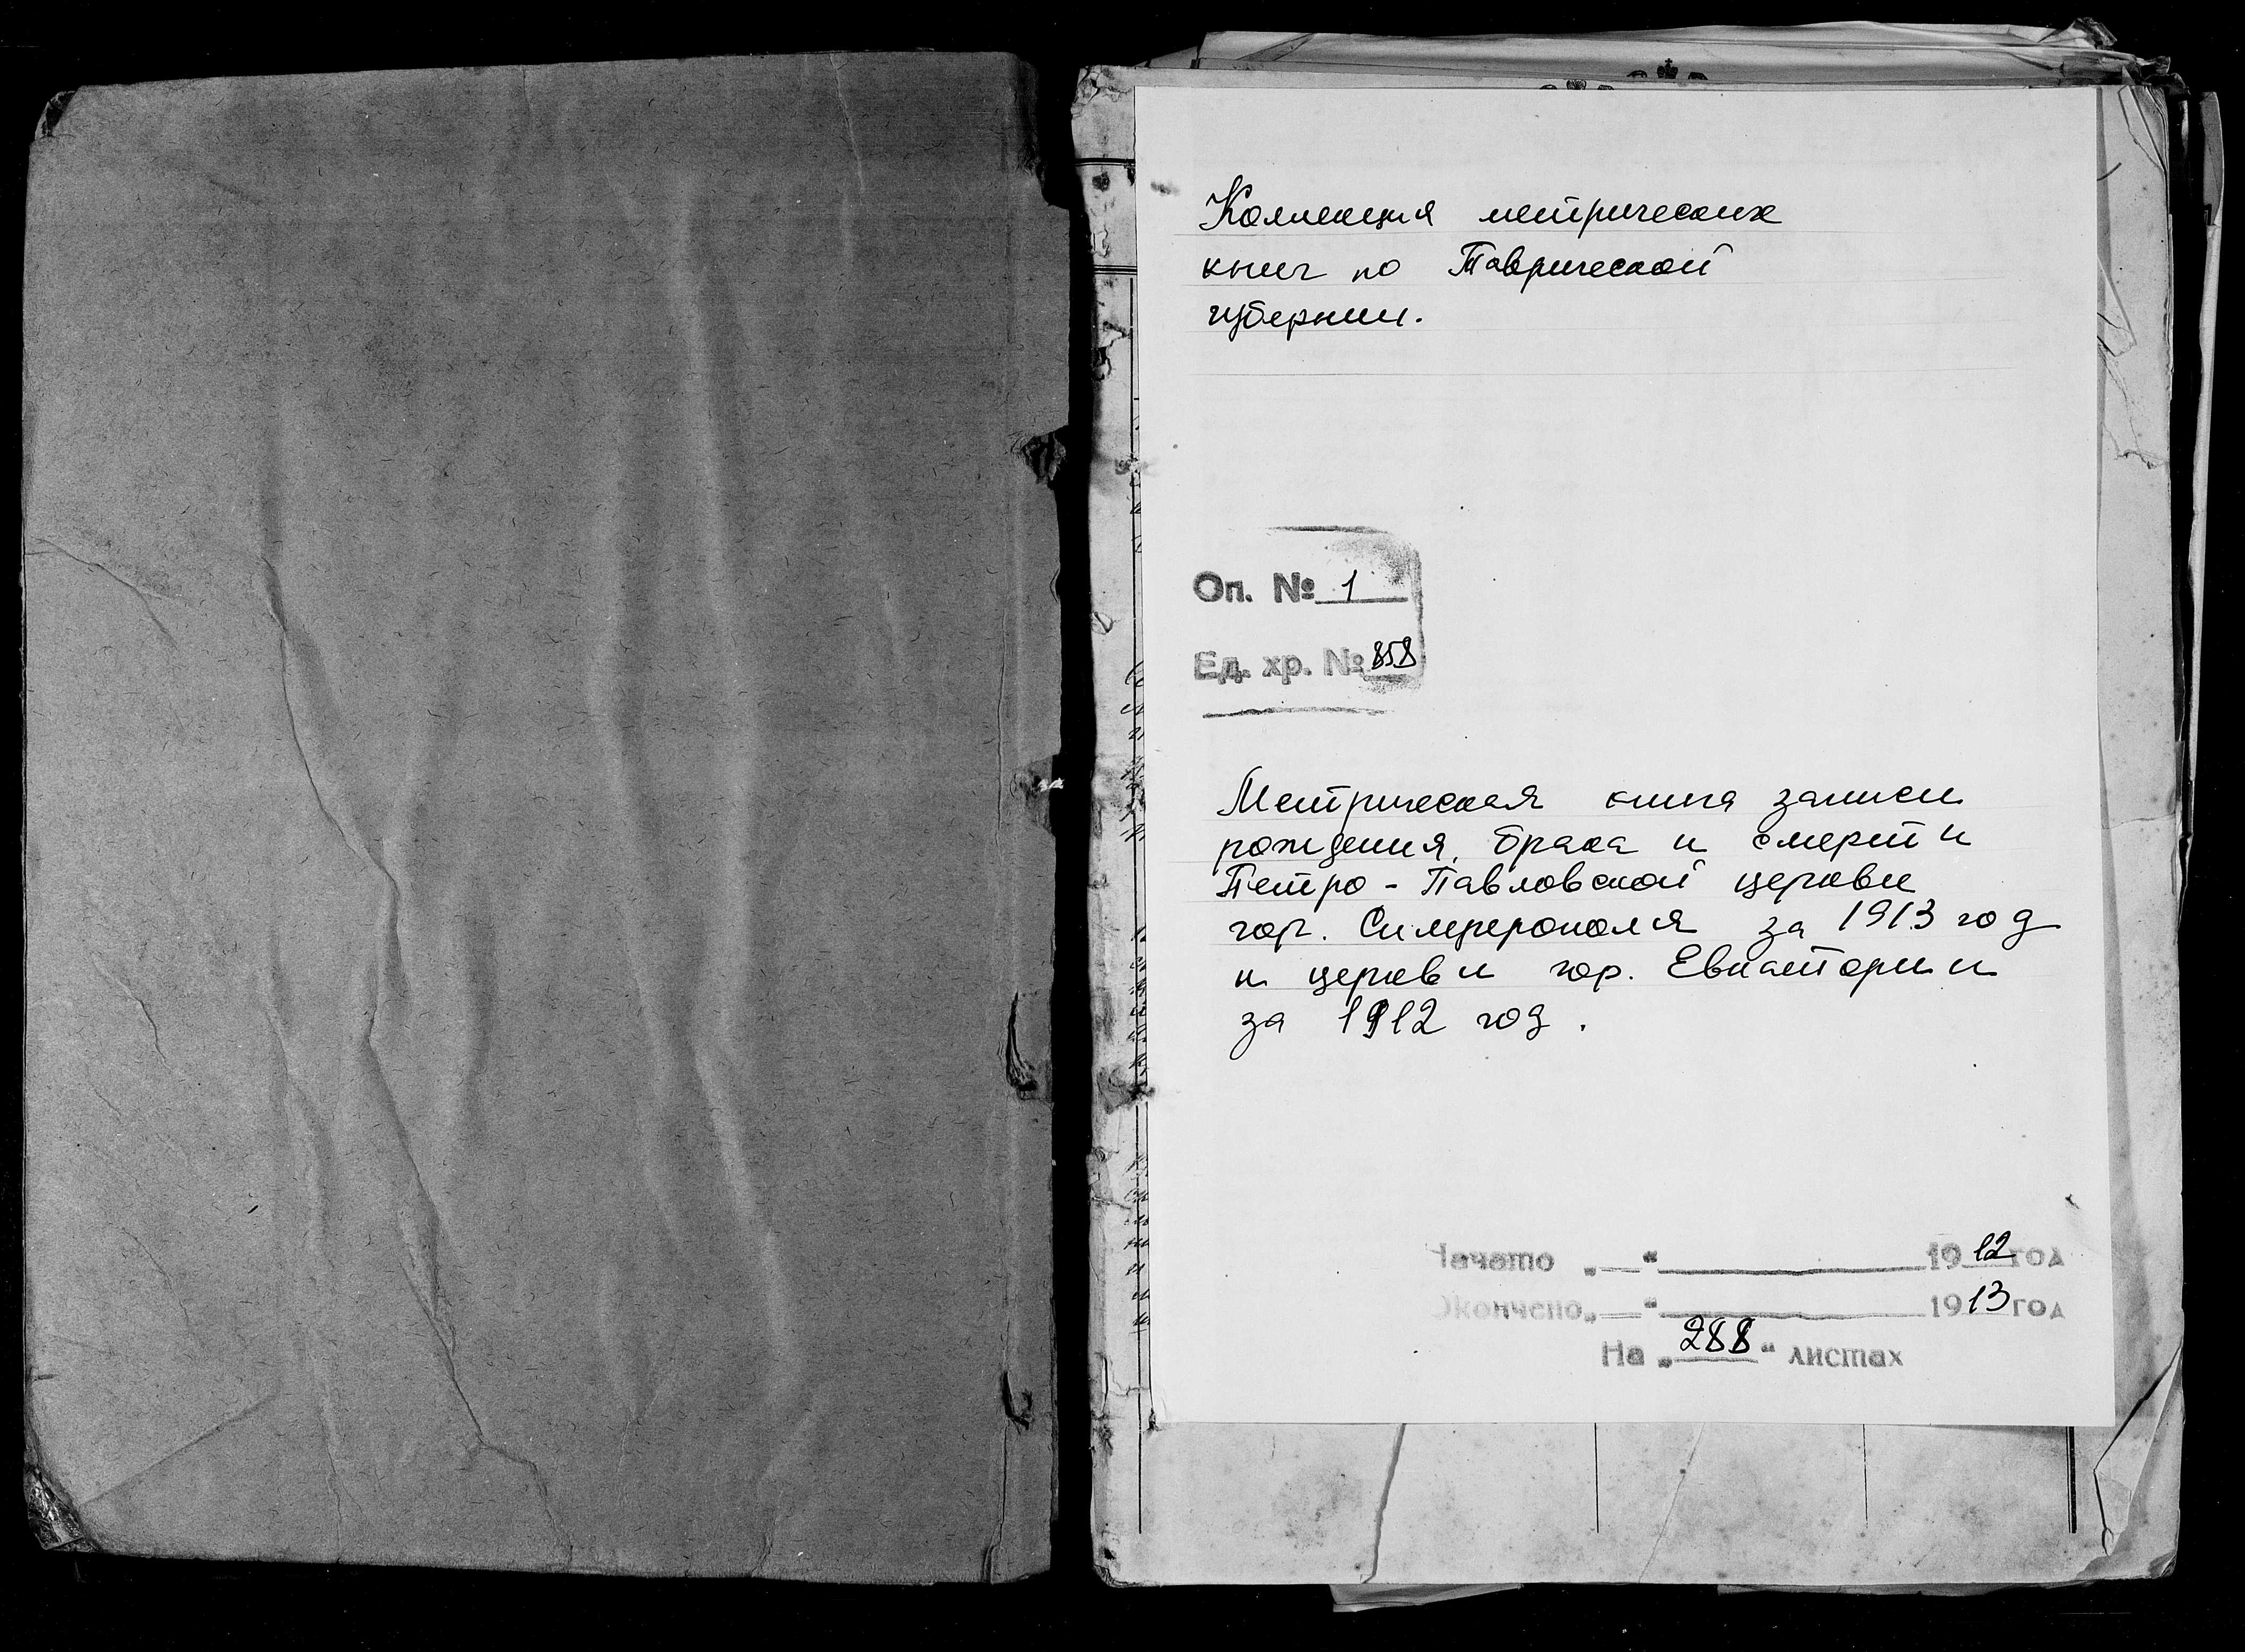 Коллекция метрических
книг по Таврической
губернии.
Оп. № 1
Ед. хр. № 858
Метрическая книга записи
рождения, брака и смерти
Петро-Павловской церкви
гор. Симферополя за 1913 год
и церкви гор. Евпатории
за 1912 год.
Начато „ — “ 1912 год
Окончено „ — “ 1913 год
На „ 288 “ листах